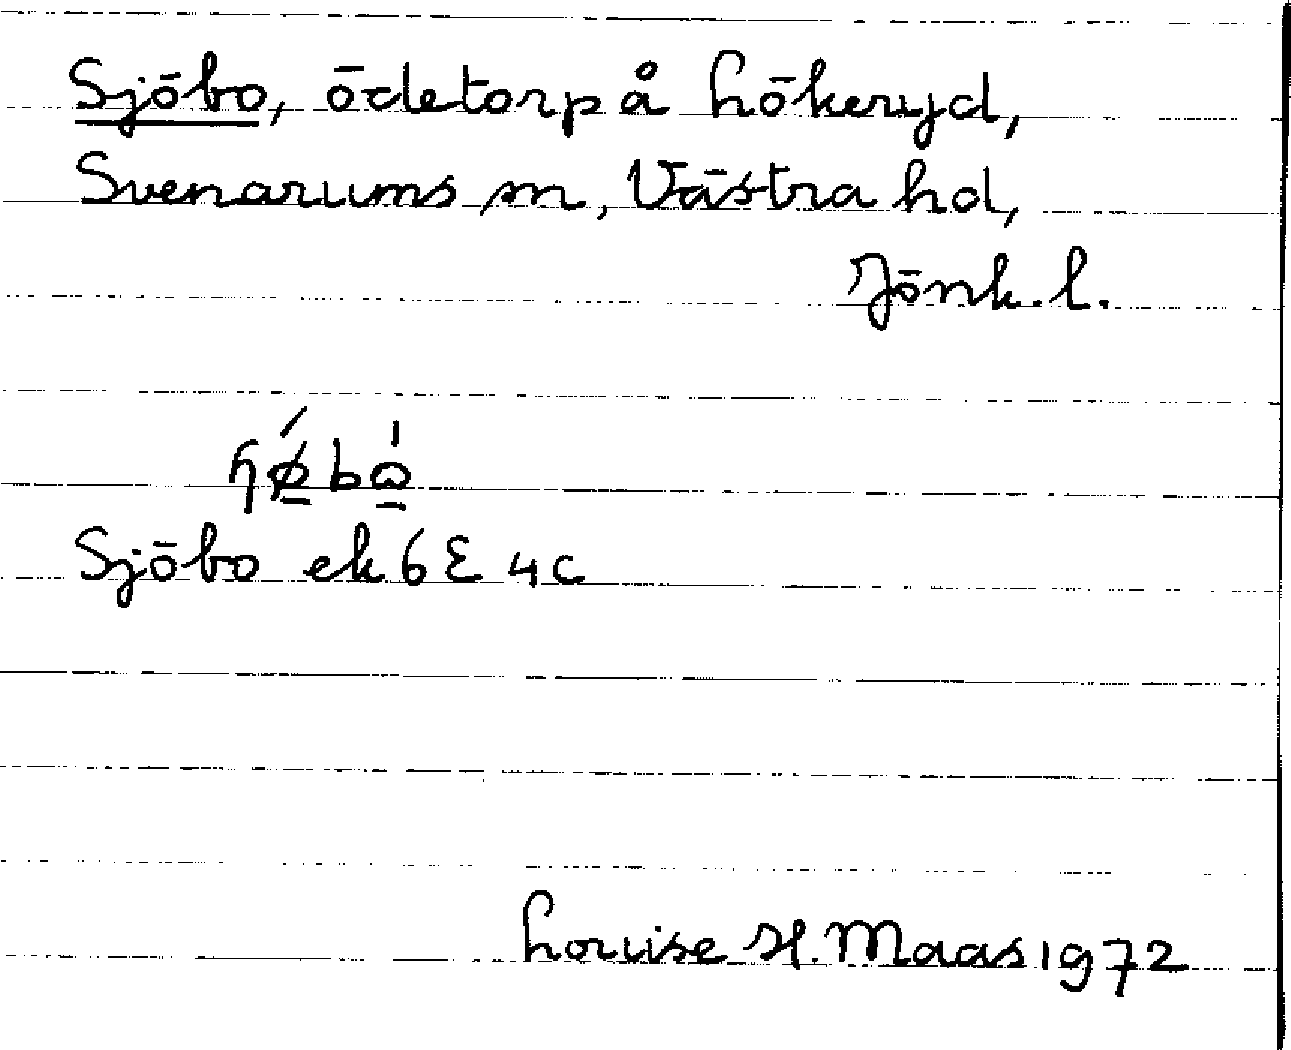 Sjöbo, ödetorp å Lökeryd,
Svenarums sn, Västra hd,
Jönk. l.
Sjöbo ek 6E 4c
Louise H. Maas 1972